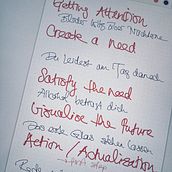 Getting Attention
Create a need
Du leidest am Tag danach
Satisfy the need
Alkohol betrügt dich
Visualise the future
Das erste Glas stehen lassen
Action / Actualization
first step